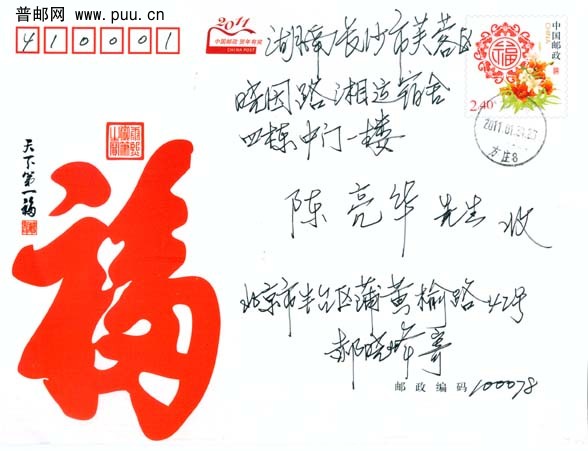 普邮网
www.puu.cn
410001
2011
中国邮政 贺年有奖
CHINA POST
湖南长沙市芙蓉区
晓园路湘运宿舍
四栋中门一楼
中国邮政
CHINA
福
2.40元
2011.01.31.20
方庄8
陈亮华先生收
天下第一福
福
北京市丰台区蒲黄榆路42号
郝晓峰寄
邮政编码 100078